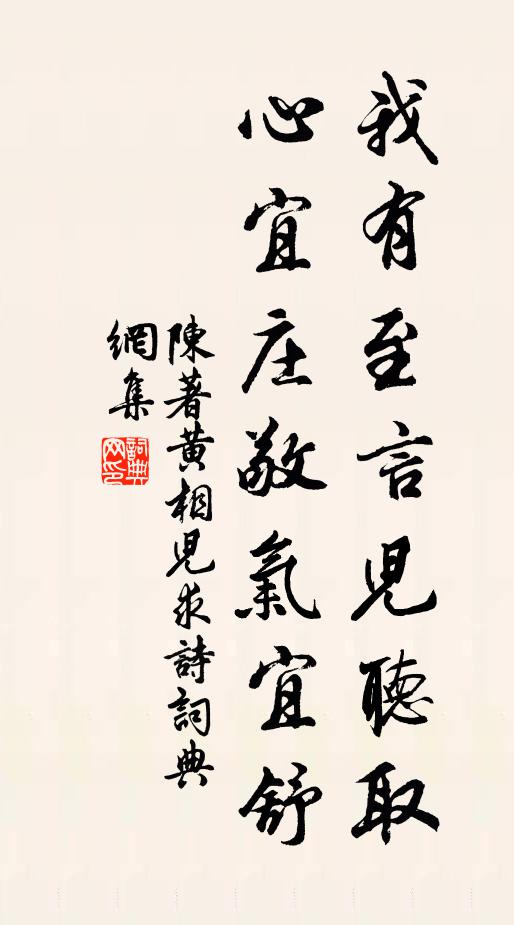 我有至言児聽取
心宜庄敬氣宜舒
陳著黄相児求詩詞典
網集
詞典网印